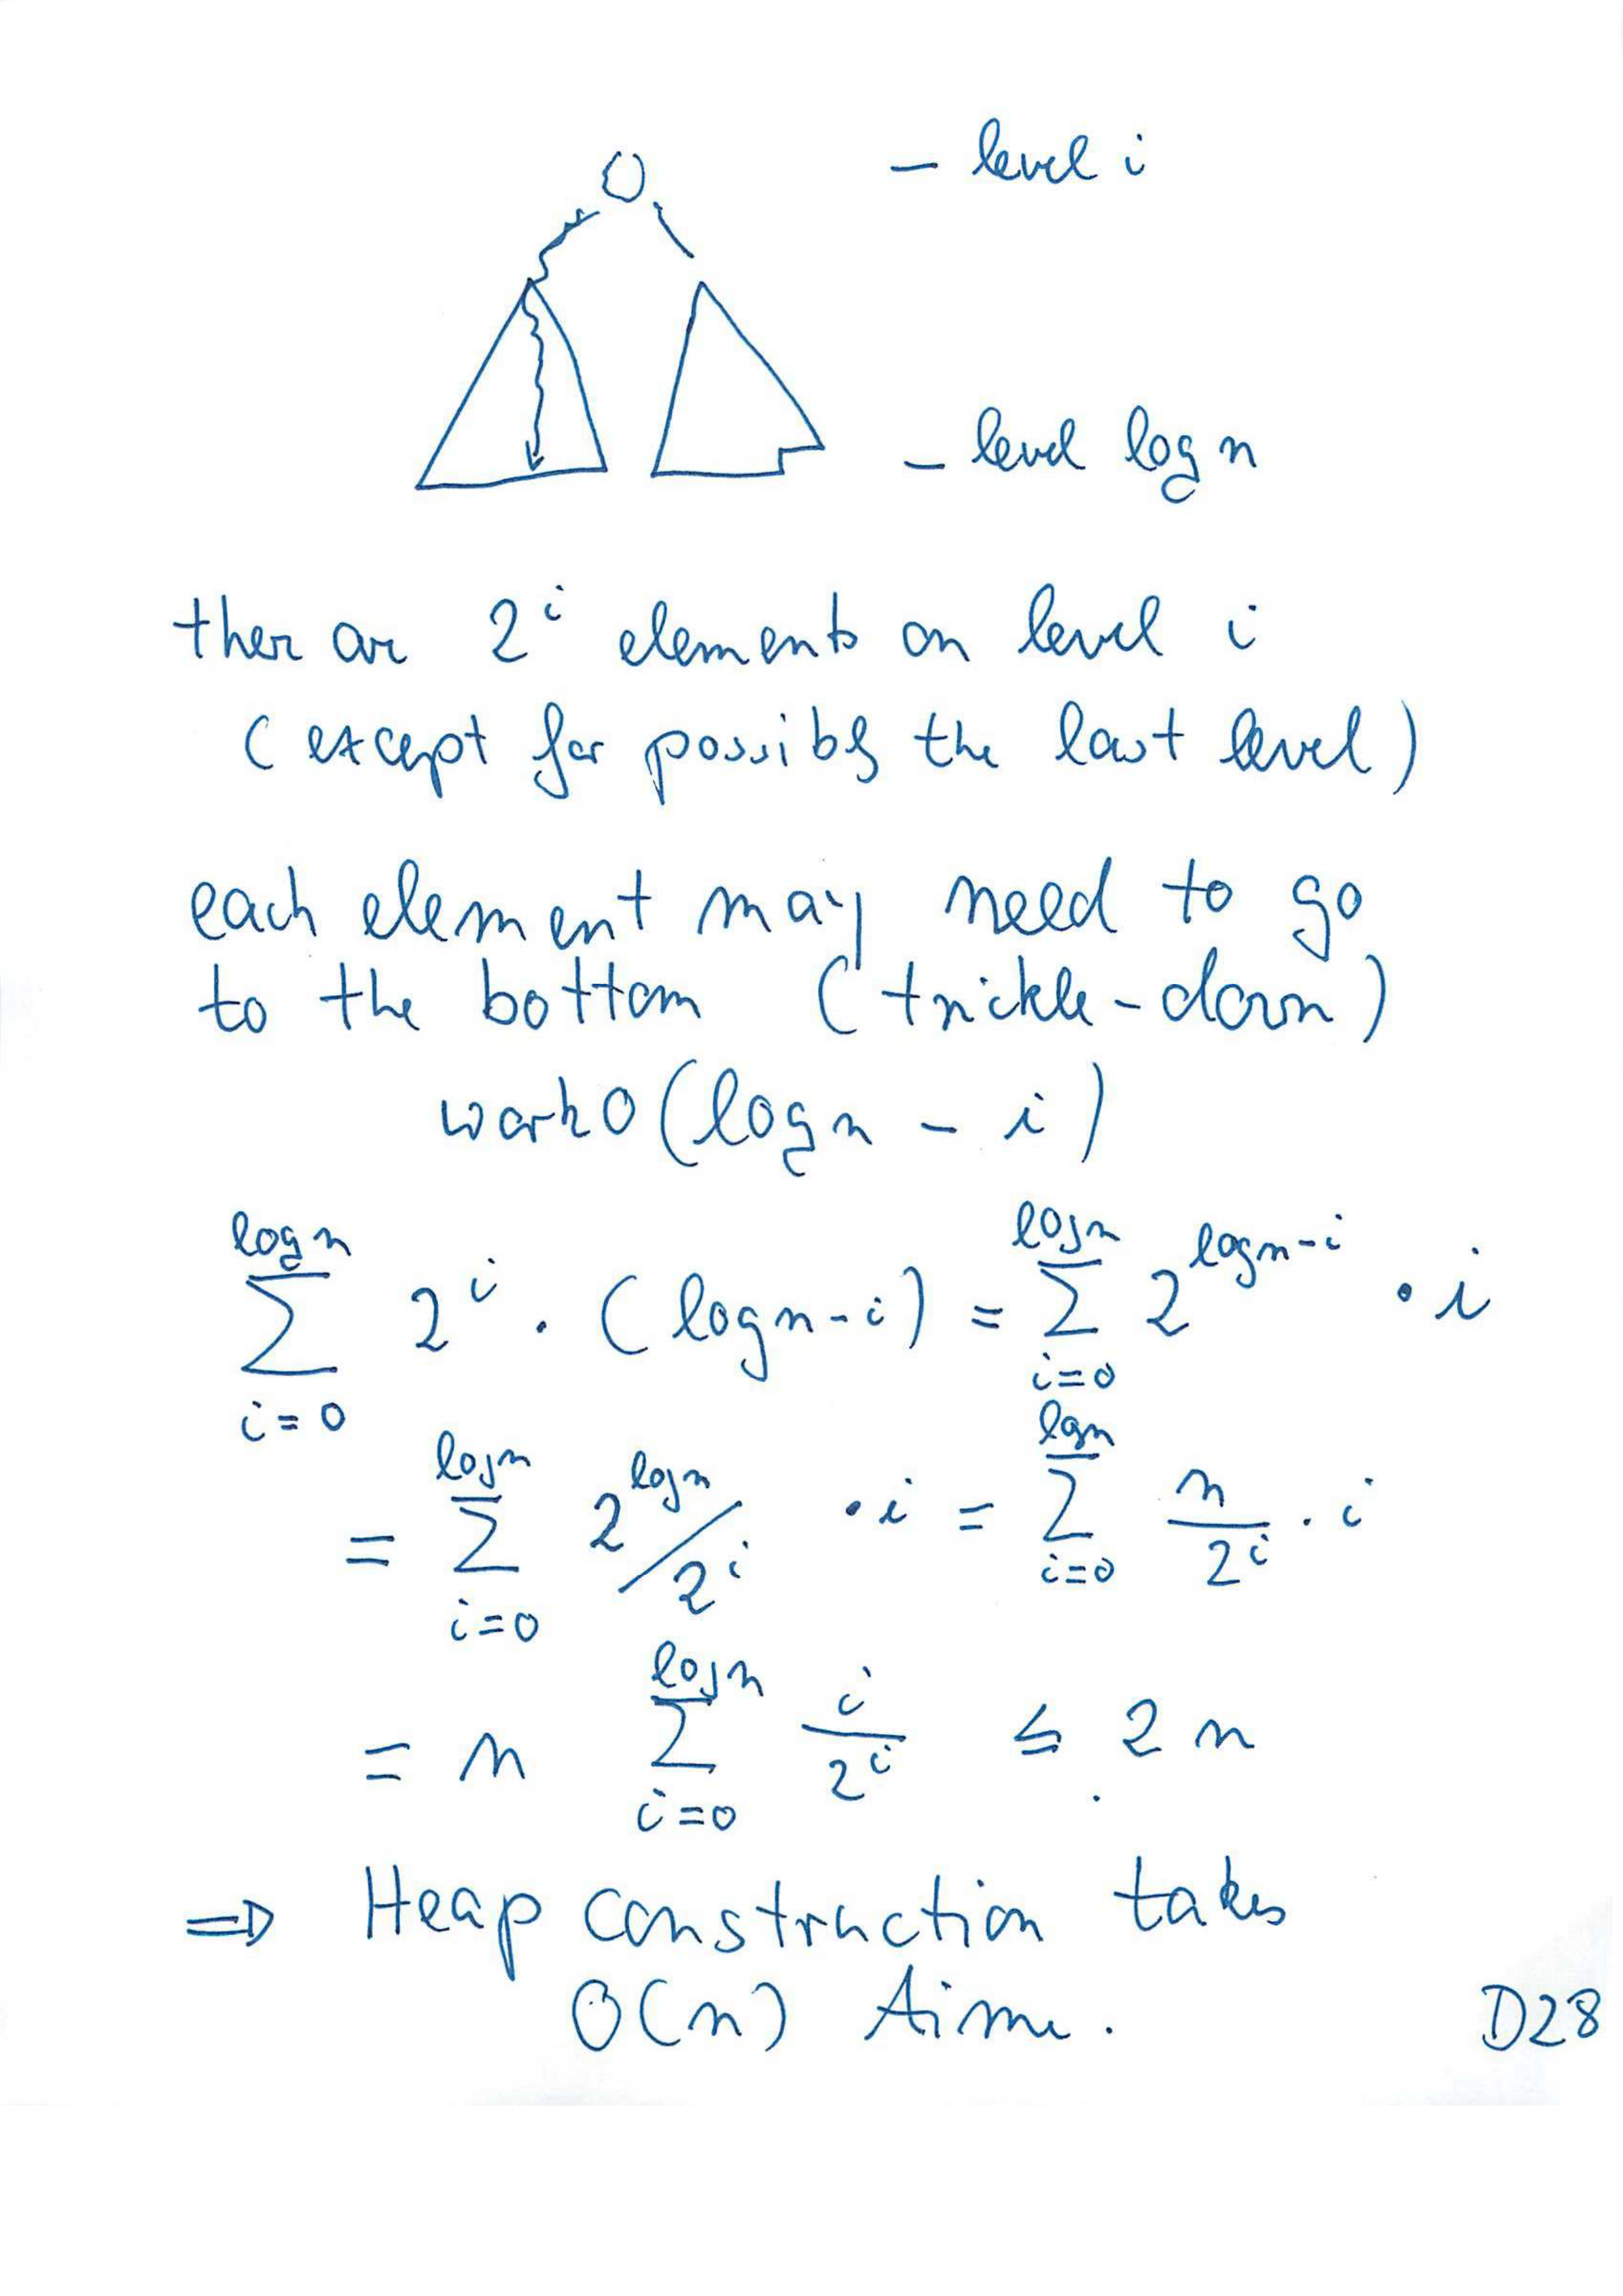 – level i
– level log n
ther are 2^i elements on level i
(except for possibly the last level)
each element may need to go
to the bottom (trickle-down)
work O(log n – i)
∑_{i=0}^{log n} 2^i · (log n - i) = ∑_{i=0}^{log n} 2^{log n - i} · i
= ∑_{i=0}^{log n} 2^{log n} / 2^i · i = ∑_{i=0}^{log n} n/2^i · i
= n ∑_{i=0}^{log n} i/2^i ≤ 2n
⇒ Heap construction takes
O(n) time.
D28